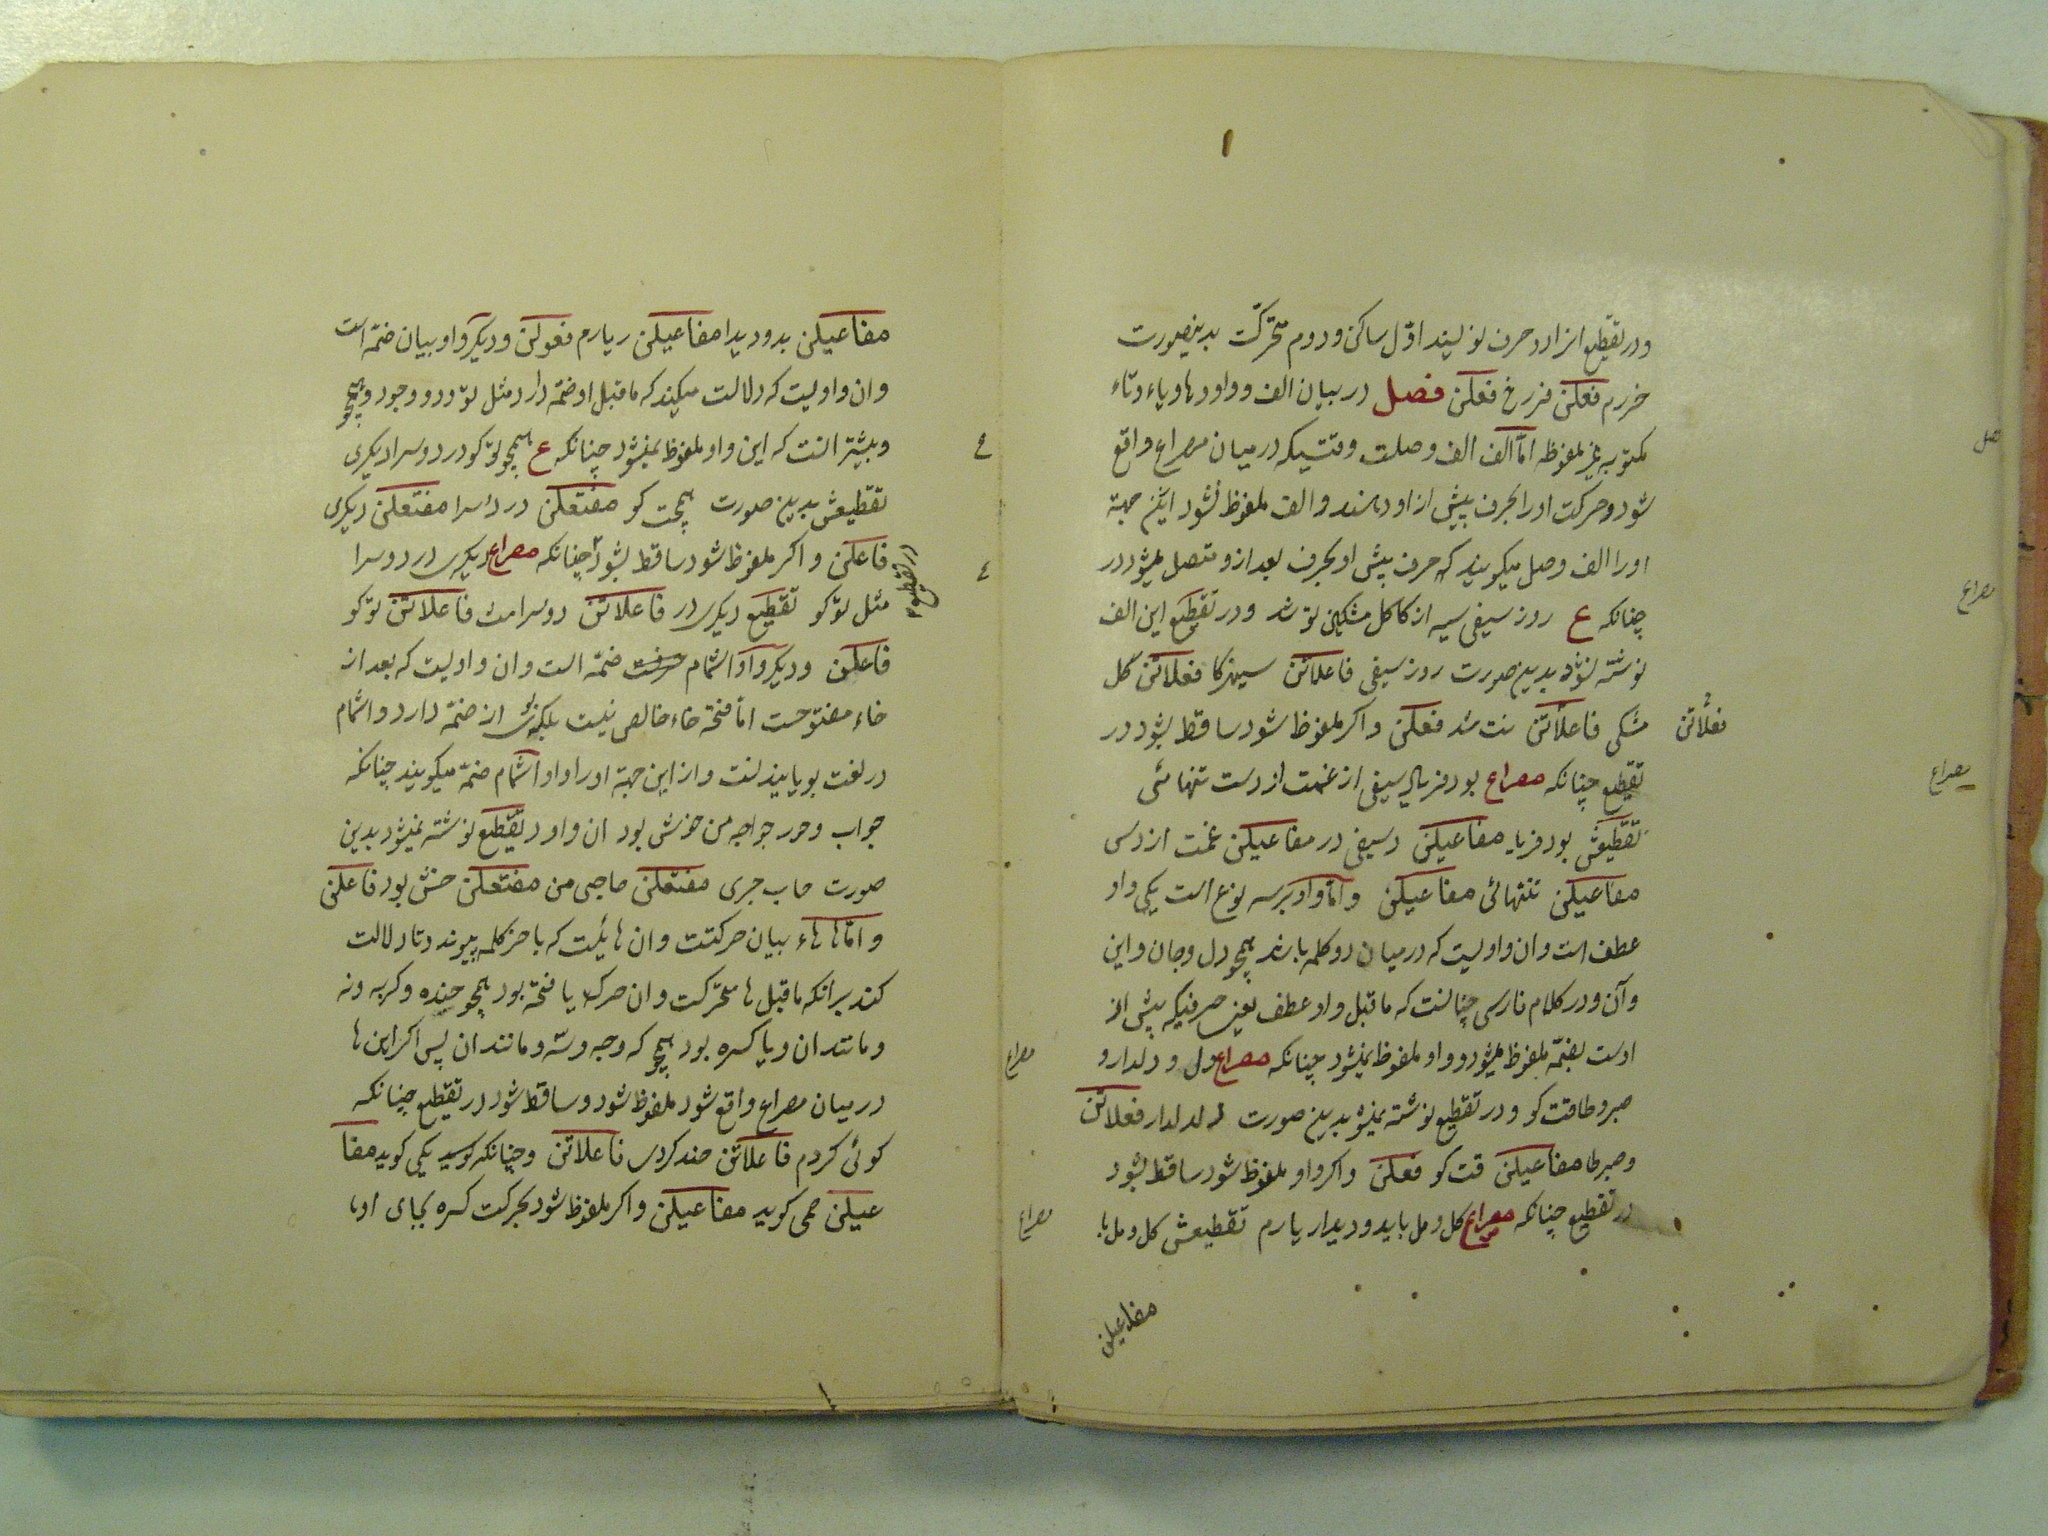 ودر تقطیع انرا دو حرف نویسند اوّل ساکن ودوم متحرکّت بدینصورت
خررم فعلن فررخ فعلن فصل در بیان الف و واو و ها و یاء و تاء
مکتوبه غیر ملفوظه امّا الف الف وصلت وقتیکه درمیان مصراع واقع
شود وحرکت اورا بحرف پیش از او دهند و الف ملفوظ نشود ازین جهة
اورا الف وصل میکویند که حرف پیش او بحرف بعد ازو متصل میشود در
چنانکه ع روز سیفی سیه از کاکل مشکین تو شد ودر تقطیع این الف
نوشته نشود بدین صورت روز سیفی فاعلاتن سیهز کا فعلاتن کل
مشکی فاعلاتن نت شد فعلن واکر ملفوظ شود ساقط نشود در
فعلاتن
تقطیع چنانکه مصراع بود فریاد سیفی از غمت از دست تنهائی
تقطیعش بود فریا مفاعیلن دسیفی در مفاعیلن غمت از دس
مفاعیلن تتنهائی مفاعیلن وامّا واو برسه نوع است یکی واو
عطف است وان واویست که درمیان دو کلمه باشد همچو دل وجان واین
وآن ودر کلام فارسی چنانست که ماقبل واو عطف یعنی حرفیکه پیش از
اوست بضمّه ملفوظ میشود و واو ملفوظ نمیشود چنانکه مصراع دل و دلدار و
صبر و طاقت کو ودر تقطیع نوشته نمیشود بدین صورت دلدلدار فعلاتن
وصبرطا مفاعیلن قت کو فعلن واکر واو ملفوظ شود ساقط نشود
در تقطیع چنانکه مصراع کل و مل باید و دیدار یارم تقطیعش کل و مل با
مفاعیلن
فصل
مصراع
مصراع
مفاعیلن بدو دیدا مفاعیلن ر یارم فعولن ودیکر واو بیان ضمّه است
وان واویست که دلالت میکند که ماقبل او ضمّه دارد مثل تو ودو وجود وهمچو
وبیشتر انست که این واو ملفوظ نمیشود چنانکه ع همچو تو کو در دو سرا دیکری
تقطیعش بدین صورت همچت کو مفتعلن در دسرا مفتعلن دیکری
فاعلن واکر ملفوظ شود ساقط نشود چنانکه مصراع دیکری در دو سرا
در تقطیع
مثل تو کو تقطیع دیکری در فاعلاتن دوسرا مث فاعلاتن تو کو
فاعلن ودیکر واو اشمام ضمّه است وان واویست که بعد از
خاء مفتوحست امّا فتحهٔ خاء خالص نیست بلکه بوئی از ضمّه دارد واشمام
در لغت بویانیدنست واز این جهة اورا واو اشمام ضمّه میکویند چنانکه
خواب وخور خواجه من خوش بود ان واو در تقطیع نوشته نمیشود بدین
صورت خاب خری مفتعلن خاجی من مفتعلن خش بود فاعلن
وامّا هاء بیان حرکتست وان هائیست که باخر کلمه پیوندد تا دلالت
کند برانکه ماقبل ها متحرّکست وان حرکه یا فتحه بود همچو خنده وکریه ونه
ومانند ان ویا کسره بود همچو که وچه وسه ومانند ان پس اکر این ها
درمیان مصراع واقع شود ملفوظ شود وساقط شود در تقطیع چنانکه
کوئی کردم فاعلاتن خند کردی فاعلاتن وچنانکه کوئید یکی کوید مفا
عیلن چمی کوید مفاعیلن واکر ملفوظ شود بحرکت کسره بجای او یا
ع
ع
مصراع
مصراع